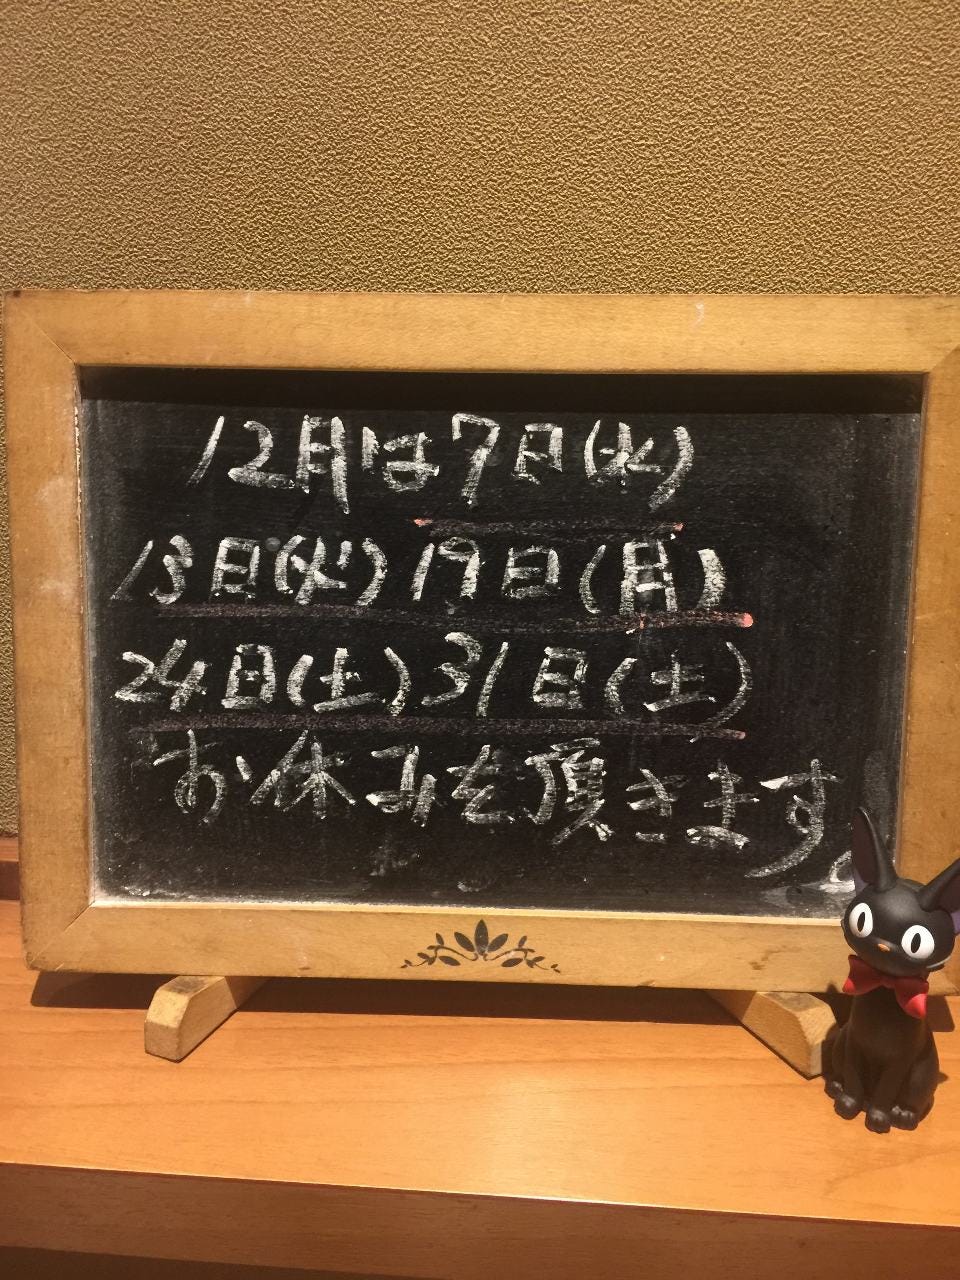 12月は7日(水)
13日(火)19日(月)
24日(土)31日(土)
お休みを頂きます。